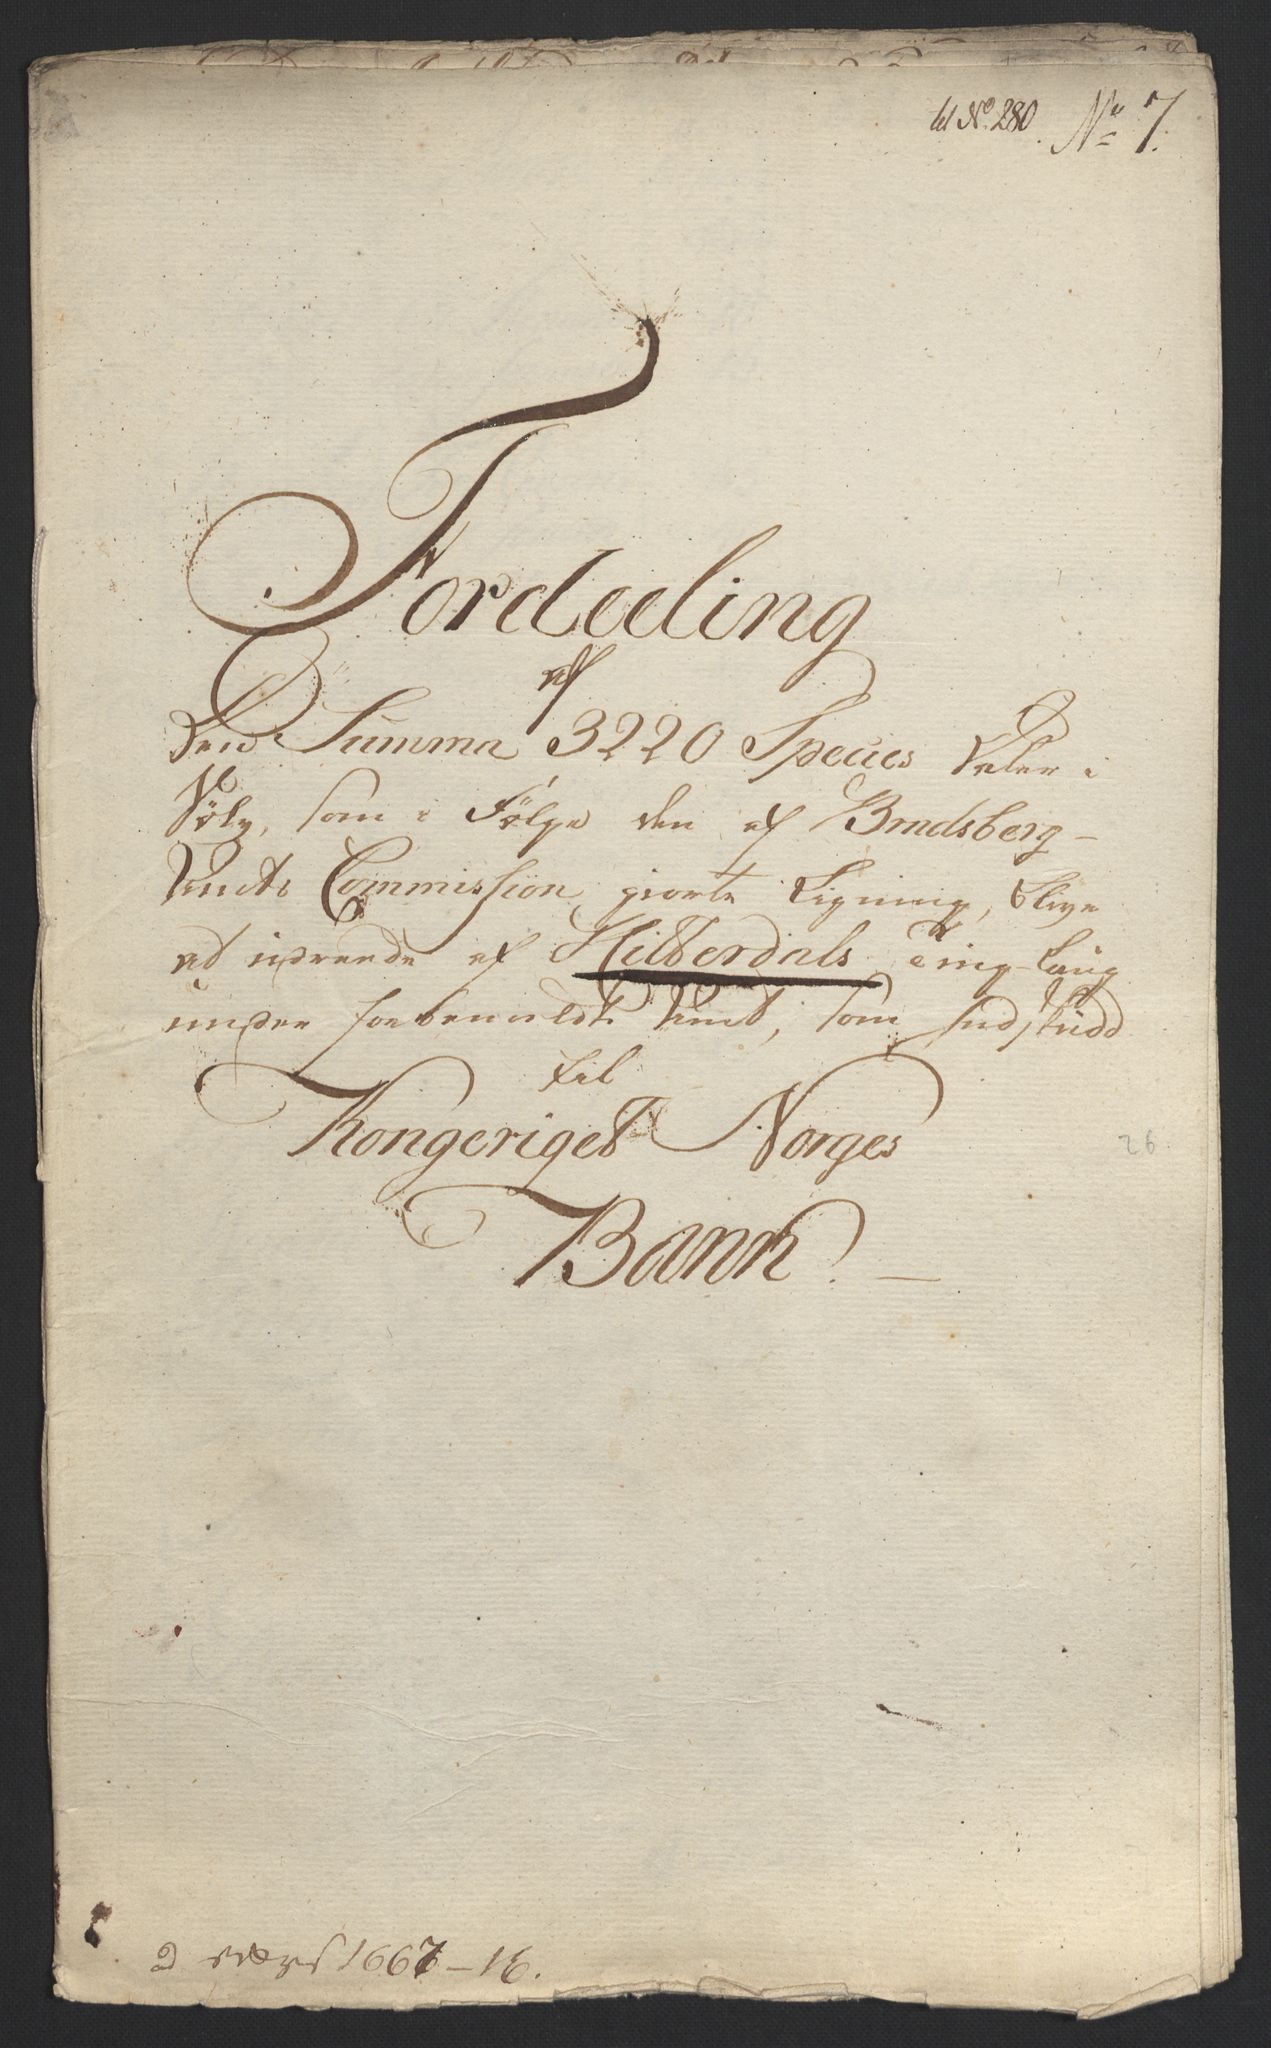 til No. 280. No 7.
Fordeeling
af
den Summa 3220 Species Daler i
Sølv, som i Følge den af Bradsberg-
Amts Commission giorte Ligning, blive
at udreede af Hitterdals Ting-Laug
under forbemeldte Amt, som Indskudd
til
Kongeriget Norges
Bank.
26
1667-16.